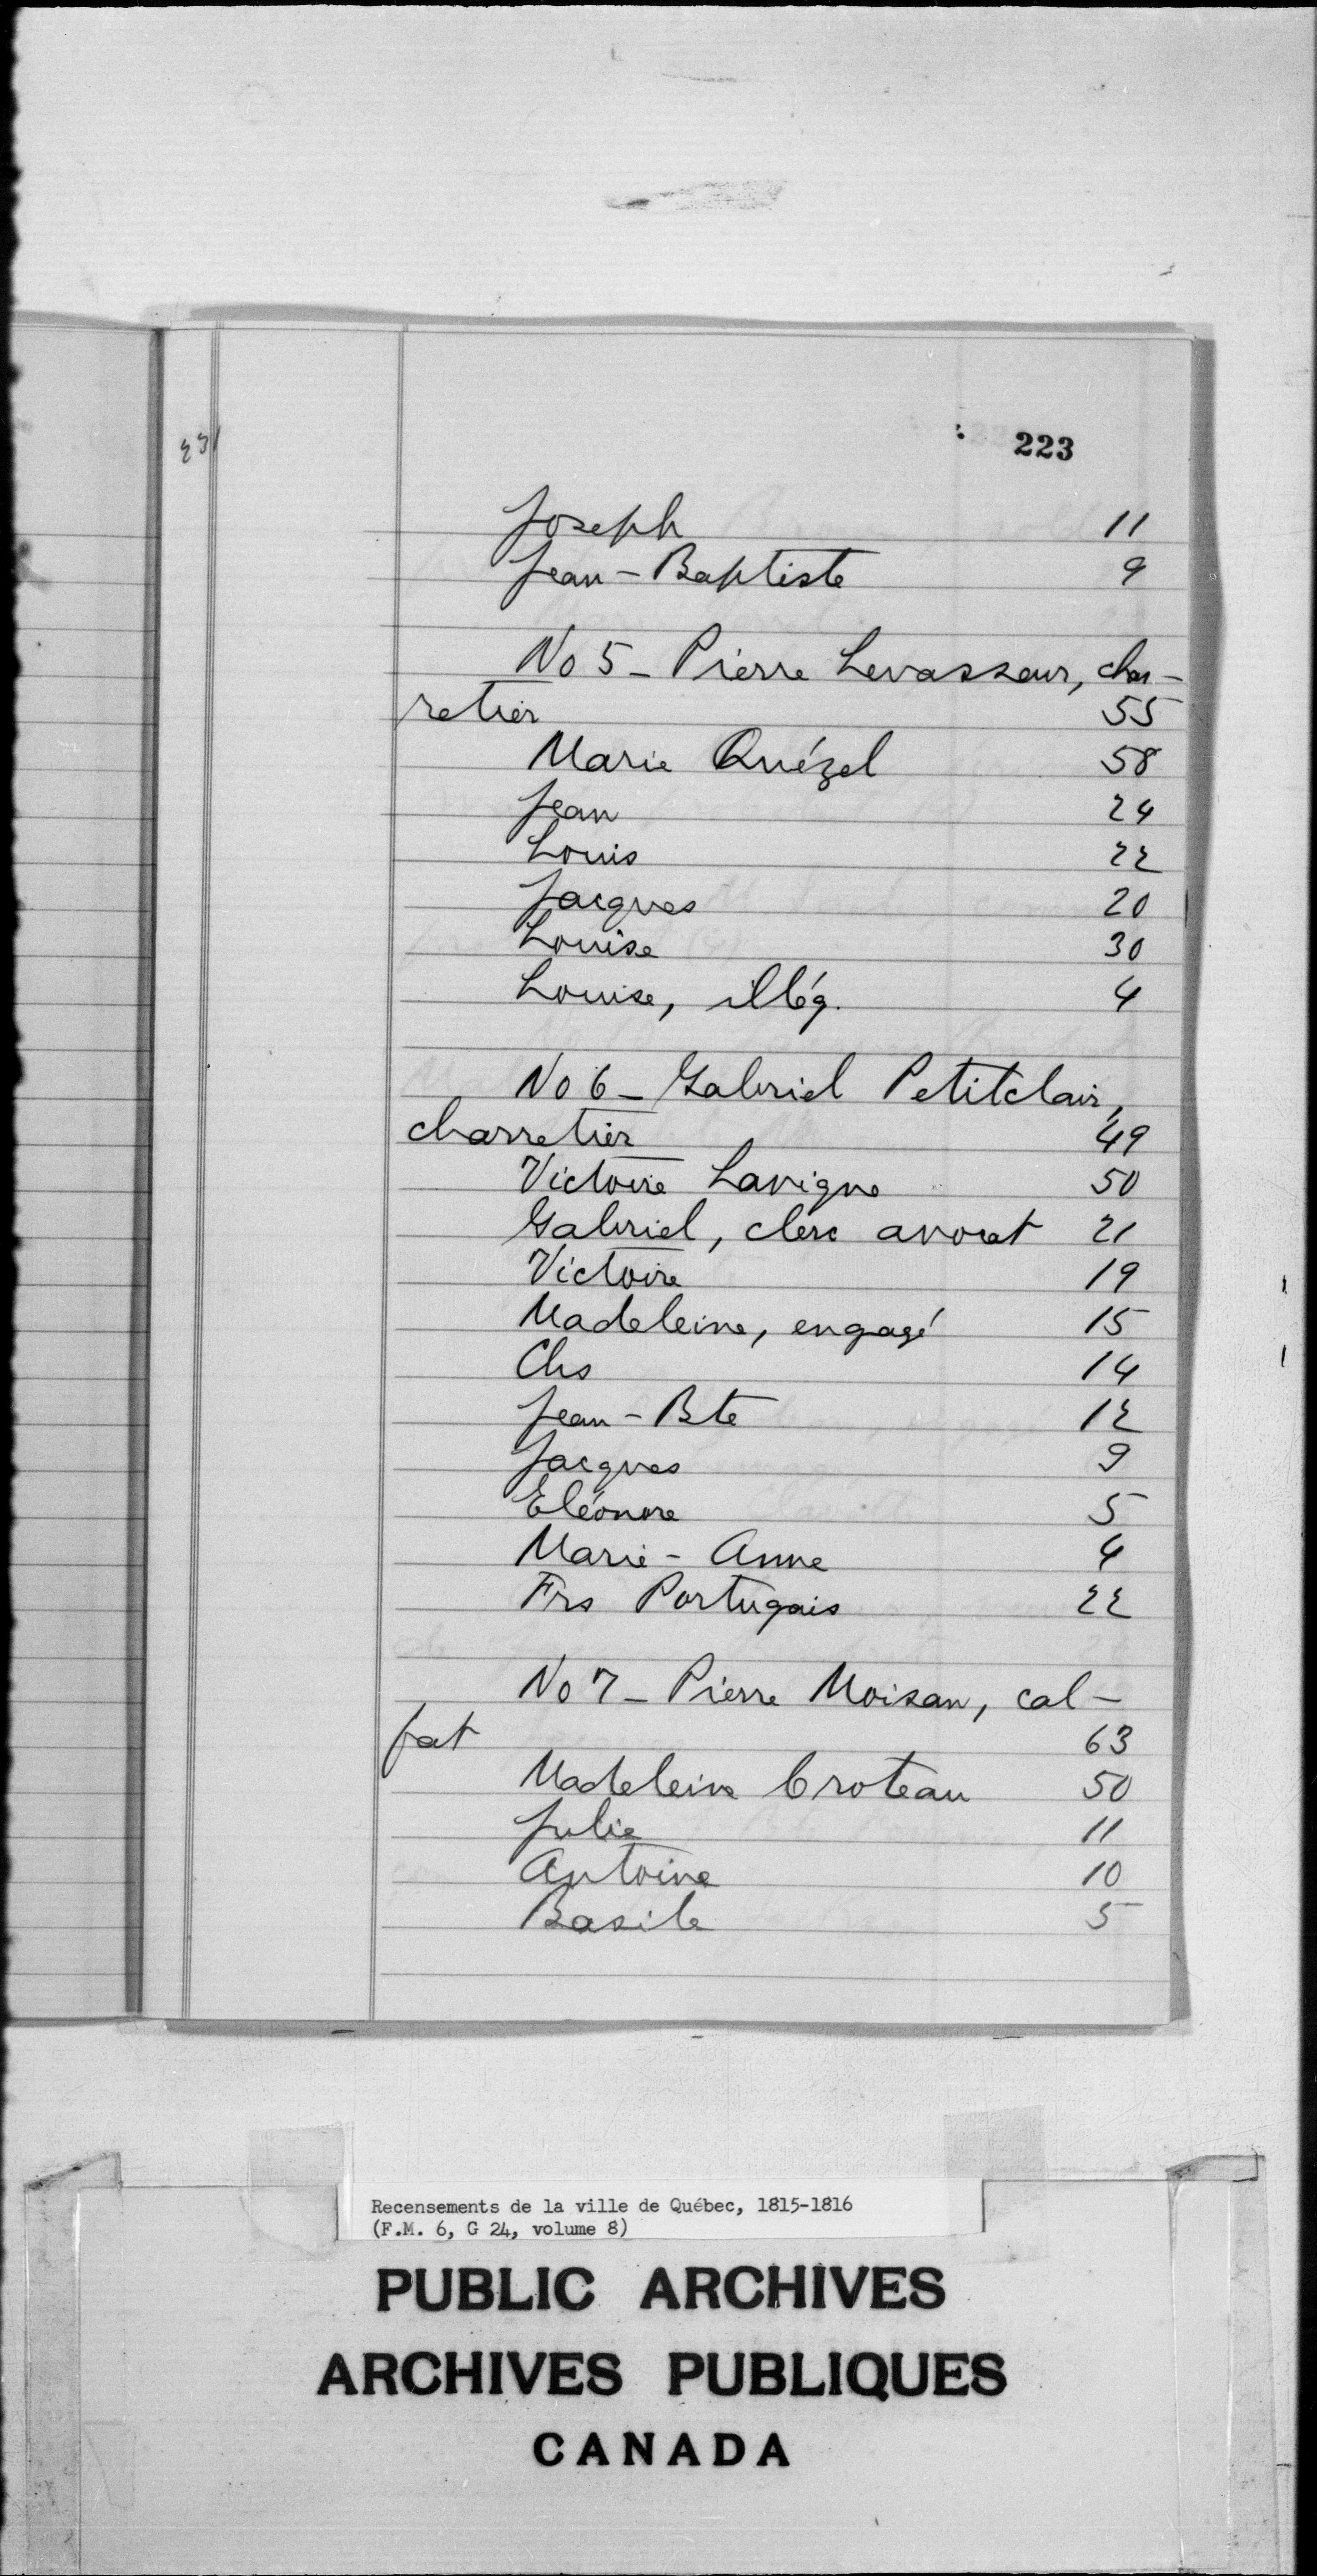 231
223
Joseph 11
Jean-Baptiste 9
No 5 - Pierre Levasseur, char-
retier 55
Marie Quézel 58
Jean 24
Louis 22
Jacques 20
Louise 30
Louise, illég. 4
No 6 - Gabriel Petitclair,
charretier 49
Victoire Lavigne 50
Gabriel, clerc avocat 21
Victoire 19
Madeleine, engagé 15
Chs 14
Jean-Bte 12
Jacques 9
Eléonore 5
Marie-Anne 4
Frs Portugais 22
No 7 - Pierre Moisan, cal-
fat 63
Madeleine Croteau 50
Julie 11
Antoine 10
Basile 5
Recensements de la ville de Québec, 1815-1816
(F.M. 6, G 24, volume 8)
PUBLIC ARCHIVES
ARCHIVES PUBLIQUES
CANADA